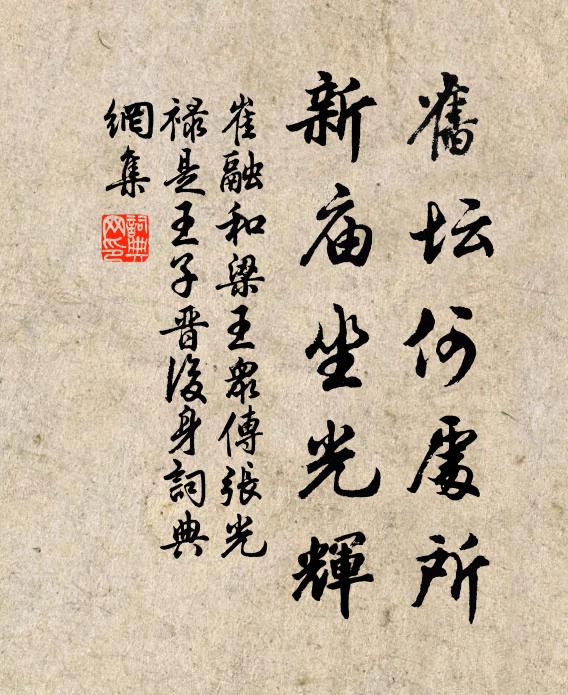 舊坛何處所
新庙坐光輝
崔融和梁王眾傳張光
禄是王子晋後身詞典
網集
詞典
网印